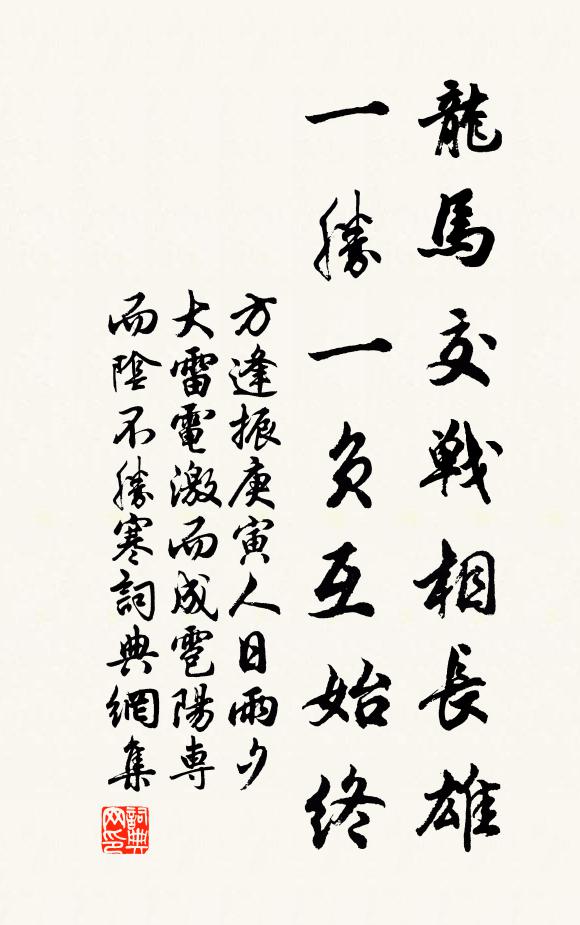 龍馬交戰相長雄
一勝一負互始終
方逢振庚寅人日雨夕
大雷電激而成雹陽専
而陰不勝寒詞典網集
詞典网印